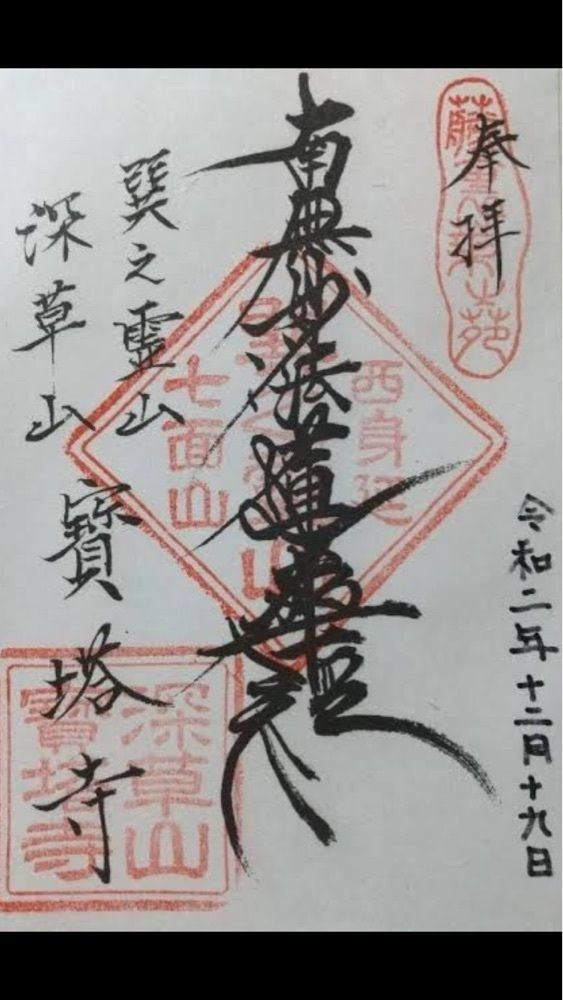 奉拝
令和二年十二月十九日
南無妙法蓮華経
西身延
七面山
巽之靈山
深草山
寳塔寺
深草山
寳塔寺